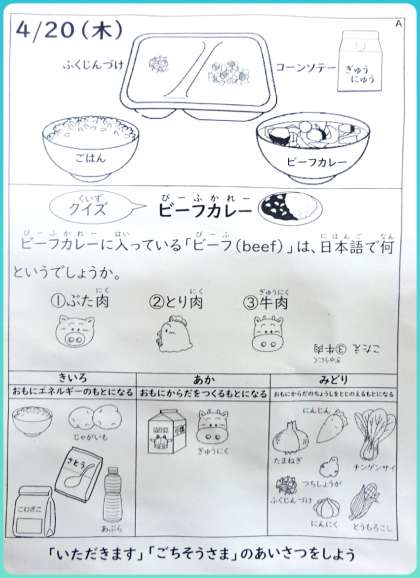 4/20(木)
A
ふくじんづけ
コーンソテー
ぎゅう
にゅう
ごはん
ビーフカレー
くいず
クイズ
びーふかれー
ビーフカレー
びーふかれー はい びーふ にほんご なん
ビーフカレーに入っている「ビーフ(beef)」は、日本語で何
というでしょうか。
にく にく ぎゅうにく
①ぶた肉 ②とり肉 ③牛肉
こたえ ③牛肉
ぎゅうにく
きいろ あか みどり
おもにエネルギーのもとになる おもにからだをつくるもとになる おもにからだのちょうしをととのえるもとになる
じゃがいも
さとう
こむぎこ
あぶら
ぎゅうにく
にんじん
たまねぎ
チンゲンサイ
つちしょうが
ふくじんづけ
にんにく
とうもろこし
「いただきます」「ごちそうさま」のあいさつをしよう